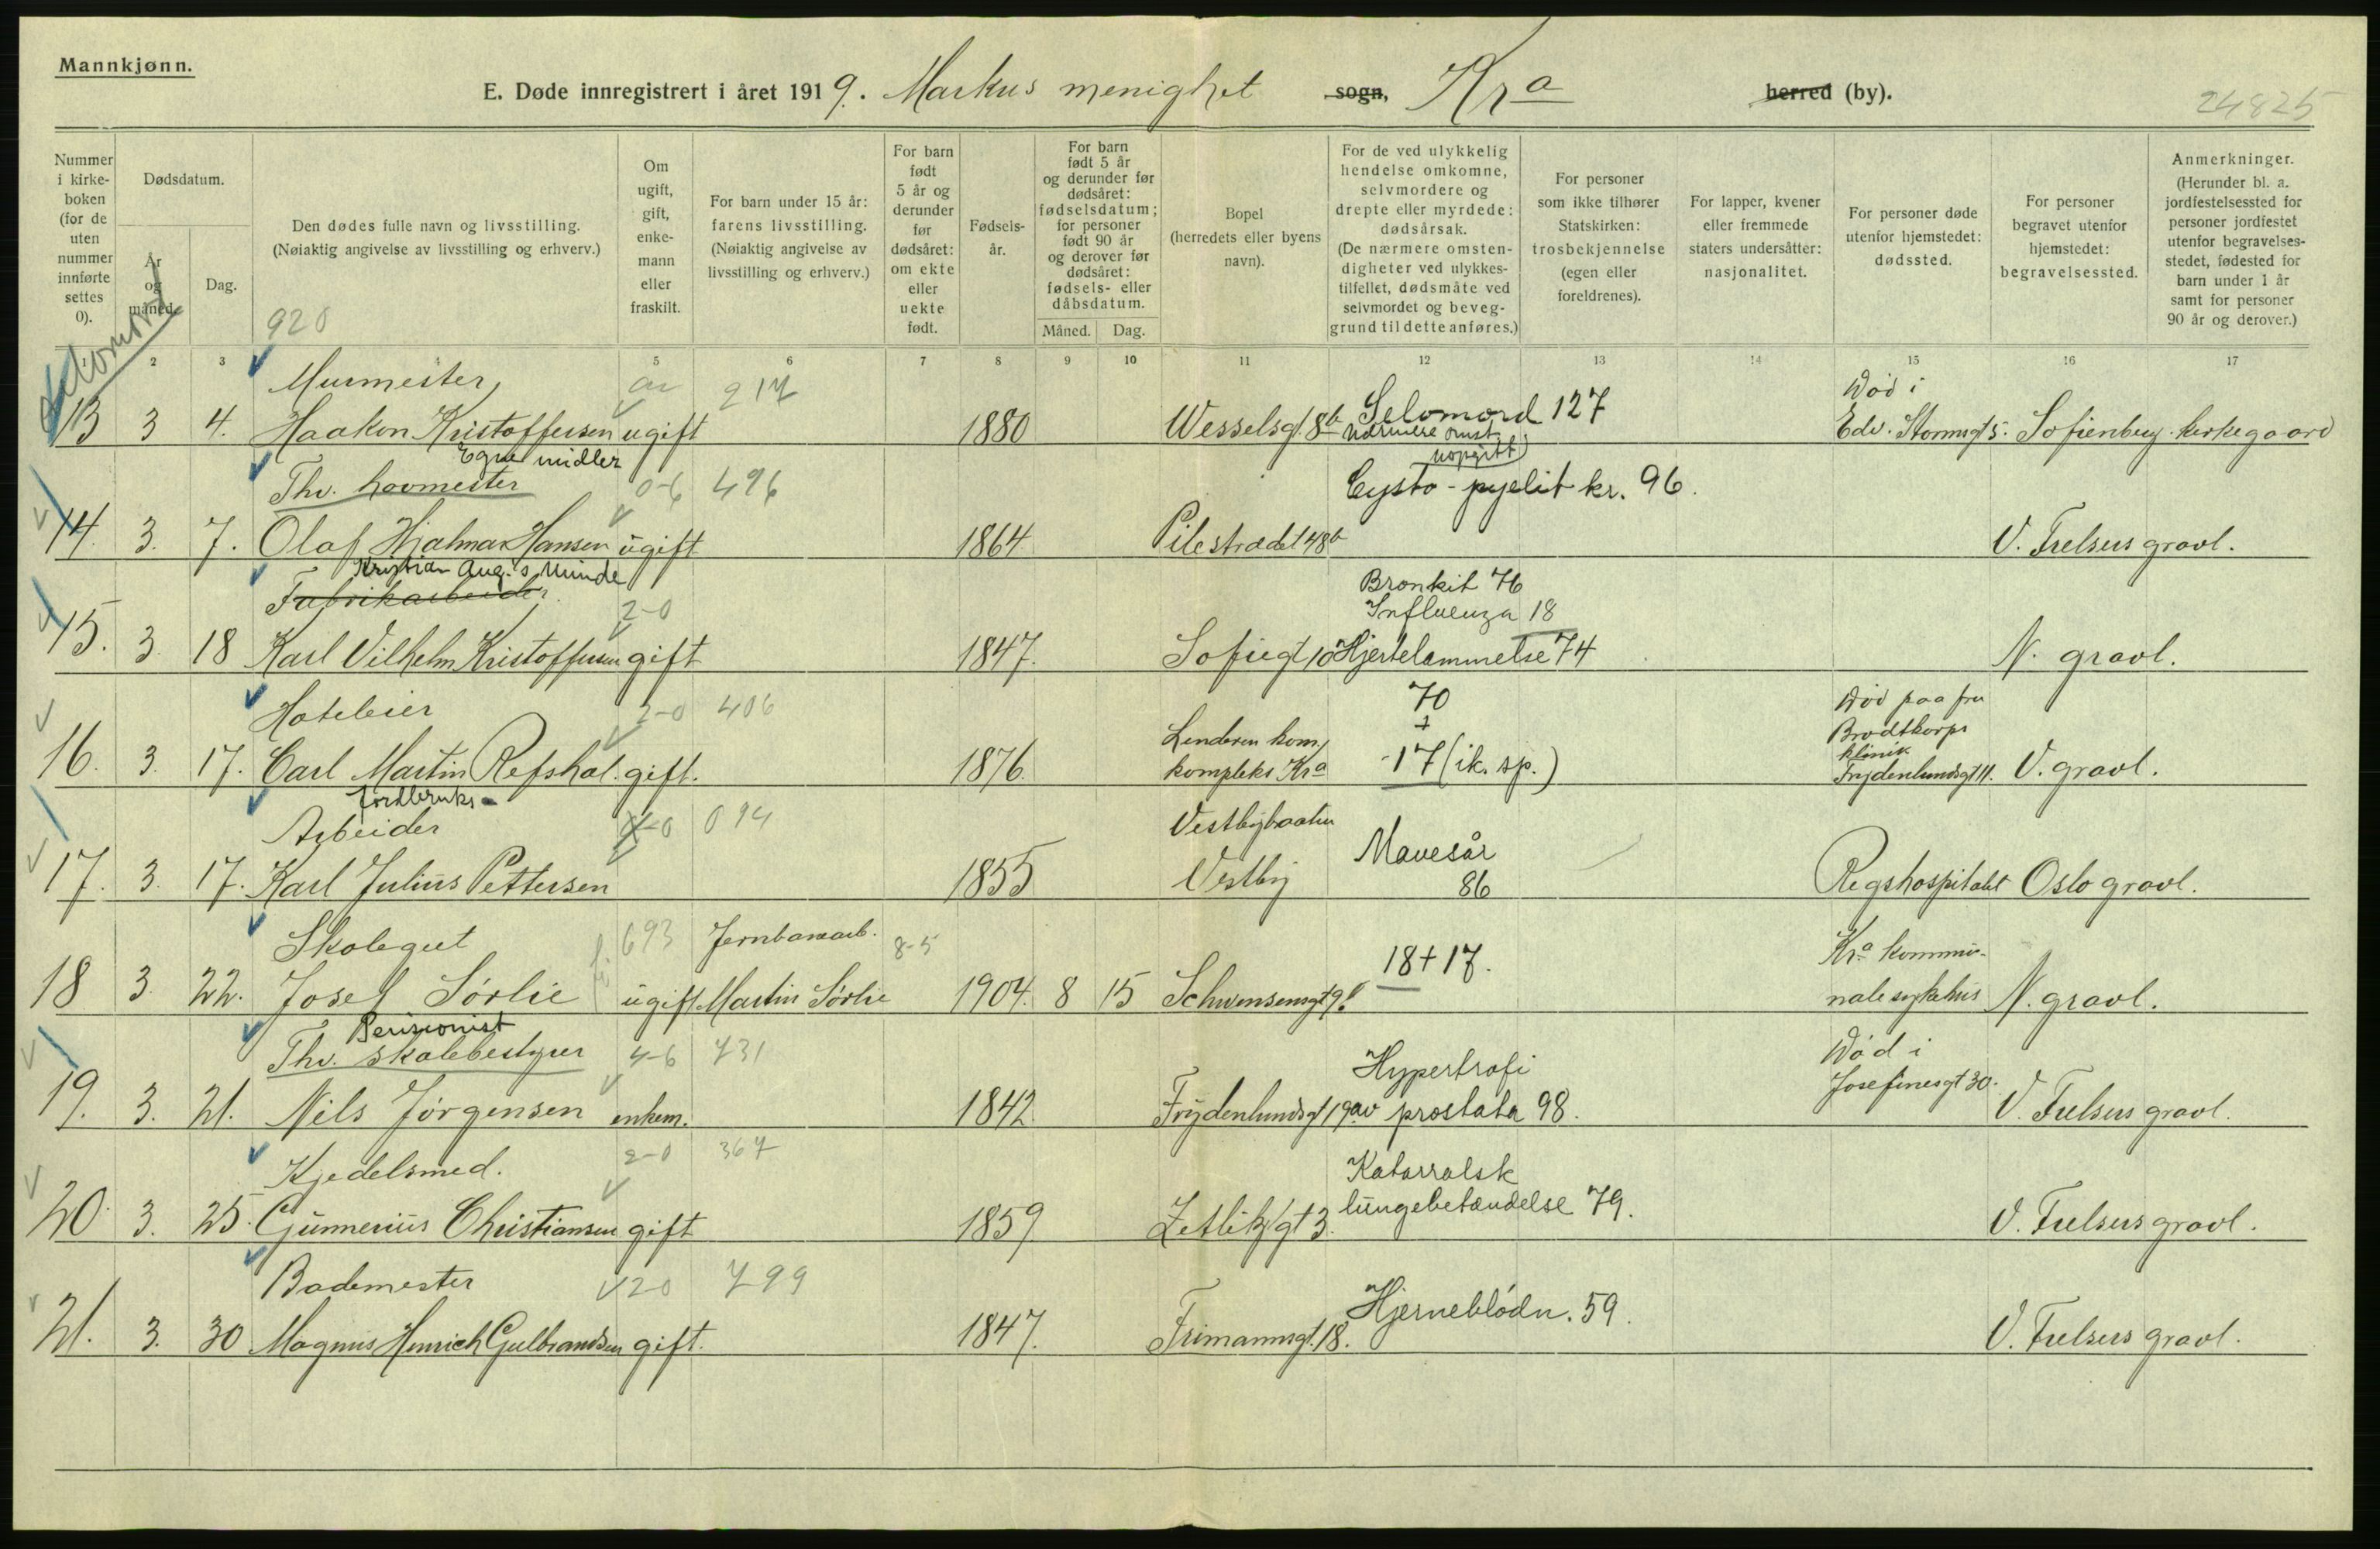 Mannkjønn.
E. Døde innregistrert i året 1919. Markus menighet sogn, Kra herred (by).
24825
Nummer i kirkeboken (for de uten nummer innførte settes 0).
Dødsdatum.
År og måned.
Dag.
Den dødes fulle navn og livsstilling.
(Nøiaktig angivelse av livsstilling og erhverv.)
920
Om ugift, gift, enkemann eller fraskilt.
For barn under 15 år: farens livsstilling.
(Nøiaktig angivelse av livsstilling og erhverv.)
For barn født 5 år og derunder før dødsåret: om ekte eller uekte født.
Fødselsår.
For barn født 5 år og derunder før dødsåret: fødselsdatum; for personer født 90 år og derover før dødsåret: fødsels- eller dåbsdatum.
Måned.
Dag.
Bopel (herredets eller byens navn).
For de ved ulykkelig hendelse omkomne, selvmordere og drepte eller myrdede: dødsårsak.
(De nærmere omstendigheter ved ulykkestilfellet, dødsmåte ved selvmordet og beveggrund til dette anføres.)
For personer som ikke tilhører Statskirken: trosbekjennelse (egen eller foreldrenes).
For lapper, kvener eller fremmede staters undersåtter: nasjonalitet.
For personer døde utenfor hjemstedet: dødssted.
For personer begravet utenfor hjemstedet: begravelsessted.
Anmerkninger.
(Herunder bl. a. jordfestelsessted for personer jordfestet utenfor begravelsesstedet, fødested for barn under 1 år samt for personer 90 år og derover.)
2 3 4 5 6 7 8 9 10 11 12 13 14 15 16 17
Selvmord
Murmester 217 Død i
13 3 4. Haakon Kristoffersen ugift 1880 Wesselsgt. 8b Selvmord 127 Edv. Stormsgt 5. Sofienberg kirkegaard
nærmere omst. uopgitt
Egne midler
Thv. hovmester 0-6 496 Cysto-pyelit kr. 96.
14. 3. 7. Olaf Hjalmar Hansen ugift 1864 Pilestrædet 48b V. Frelsers gravl.
Kristian Aug.'s Minde
Fabrikarbeider 2-0 Bronkit 76
Influenza 18
15. 3. 18 Karl Vilhelm Kristoffersen gift 1847. Sofiegt 10 Hjertelammelse 74 N. gravl.
Hoteleier 2-0 406 70 Død paa fru
+ Brodtkorps
Lenderen kom. klinik
16. 3. 17. Carl Martin Refshal. gift. 1876. kompleks Kra 17 (ik. sp.) Frydenlundsgt 11. V. gravl.
Jordbruks-
Arbeider 094 Vestbybraaten
17. 3. 17. Karl Julius Pettersen 1855 Vestby Mavesår 86 Rigshospitalet Oslo gravl.
Skolegut 693 Jernbanearb. 8-5 18+17. Kra kommu-
18 3. 22. Josef Sørlie ugift Martin Sørlie 1904. 8 15 Schwensensgt 9. nale sykehus N. gravl.
Pensionist
Thv. skolebestyrer 4-6 731 Hypertrofi Død i
Josefinesgt 30.
19. 3. 21. Nils Jørgensen enkem. 1842. Frydenlundsgt 19 av prostata 98. V. Frelsers gravl.
Kjedelsmed. 2-0 367 Katarralsk
20. 3. 25. Gunnerius Christiansen gift 1859 Zetlitzgt 3. lungebetændelse 79. V. Frelsers gravl.
Bademester 20 799
21. 3. 30 Magnus Henrich Gulbrandsen gift. 1847. Frimannsgt. 18. Hjerneblødn. 59. V. Frelsers gravl.